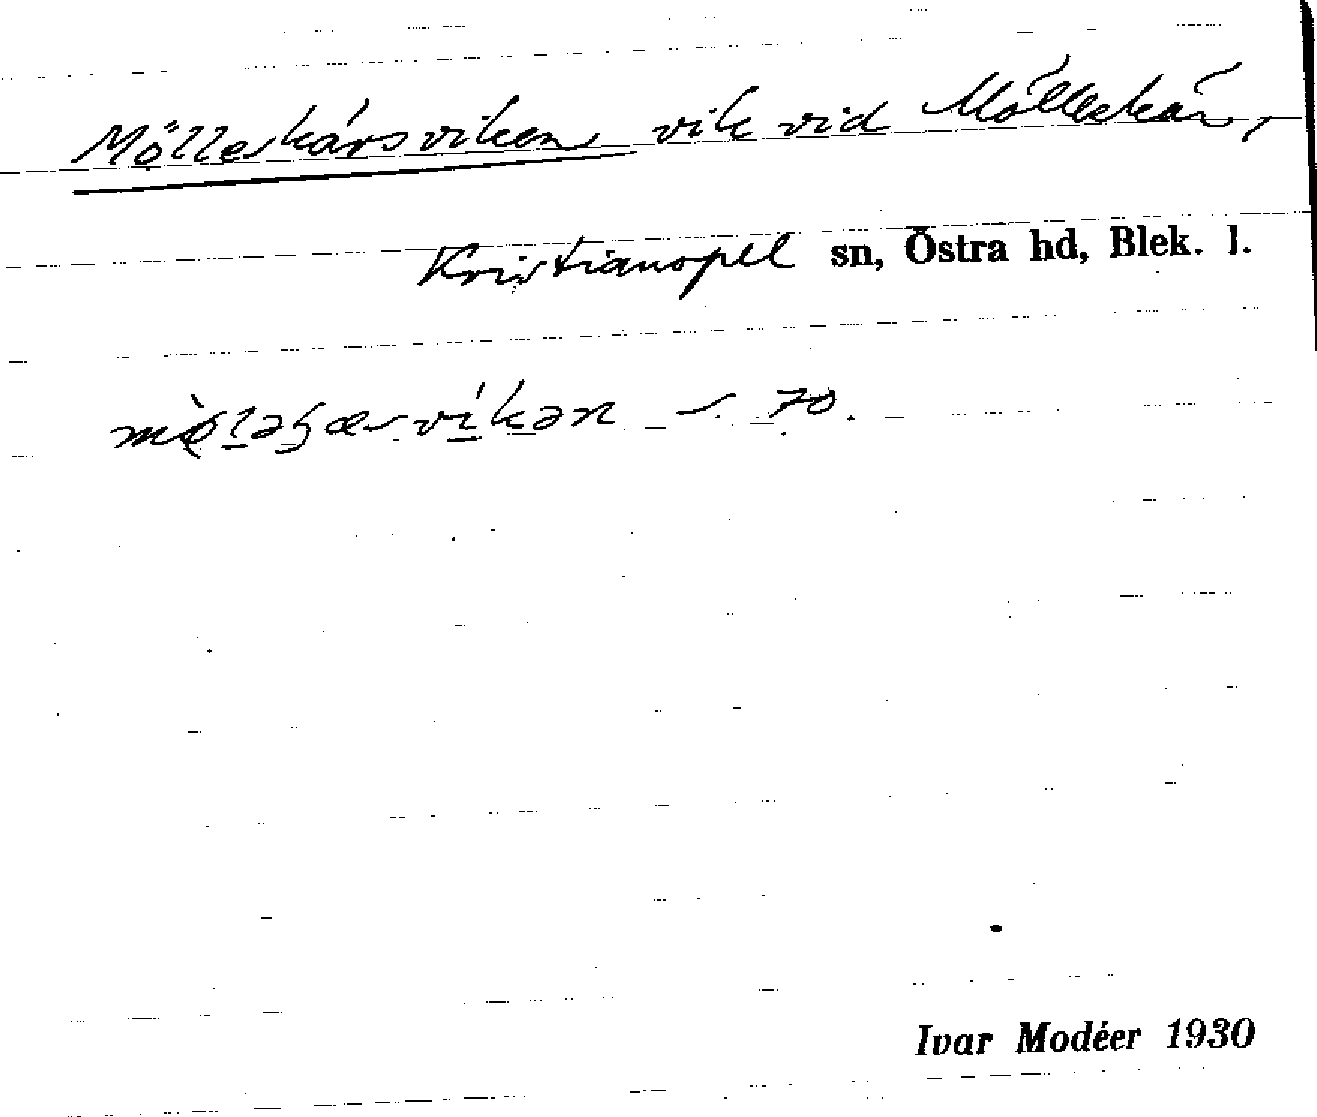 Mölleskärsviken vik vid Mölleskär,
Kristianopel sn, Östra hd, Blek. l.
70.
Ivar Modéer 1930